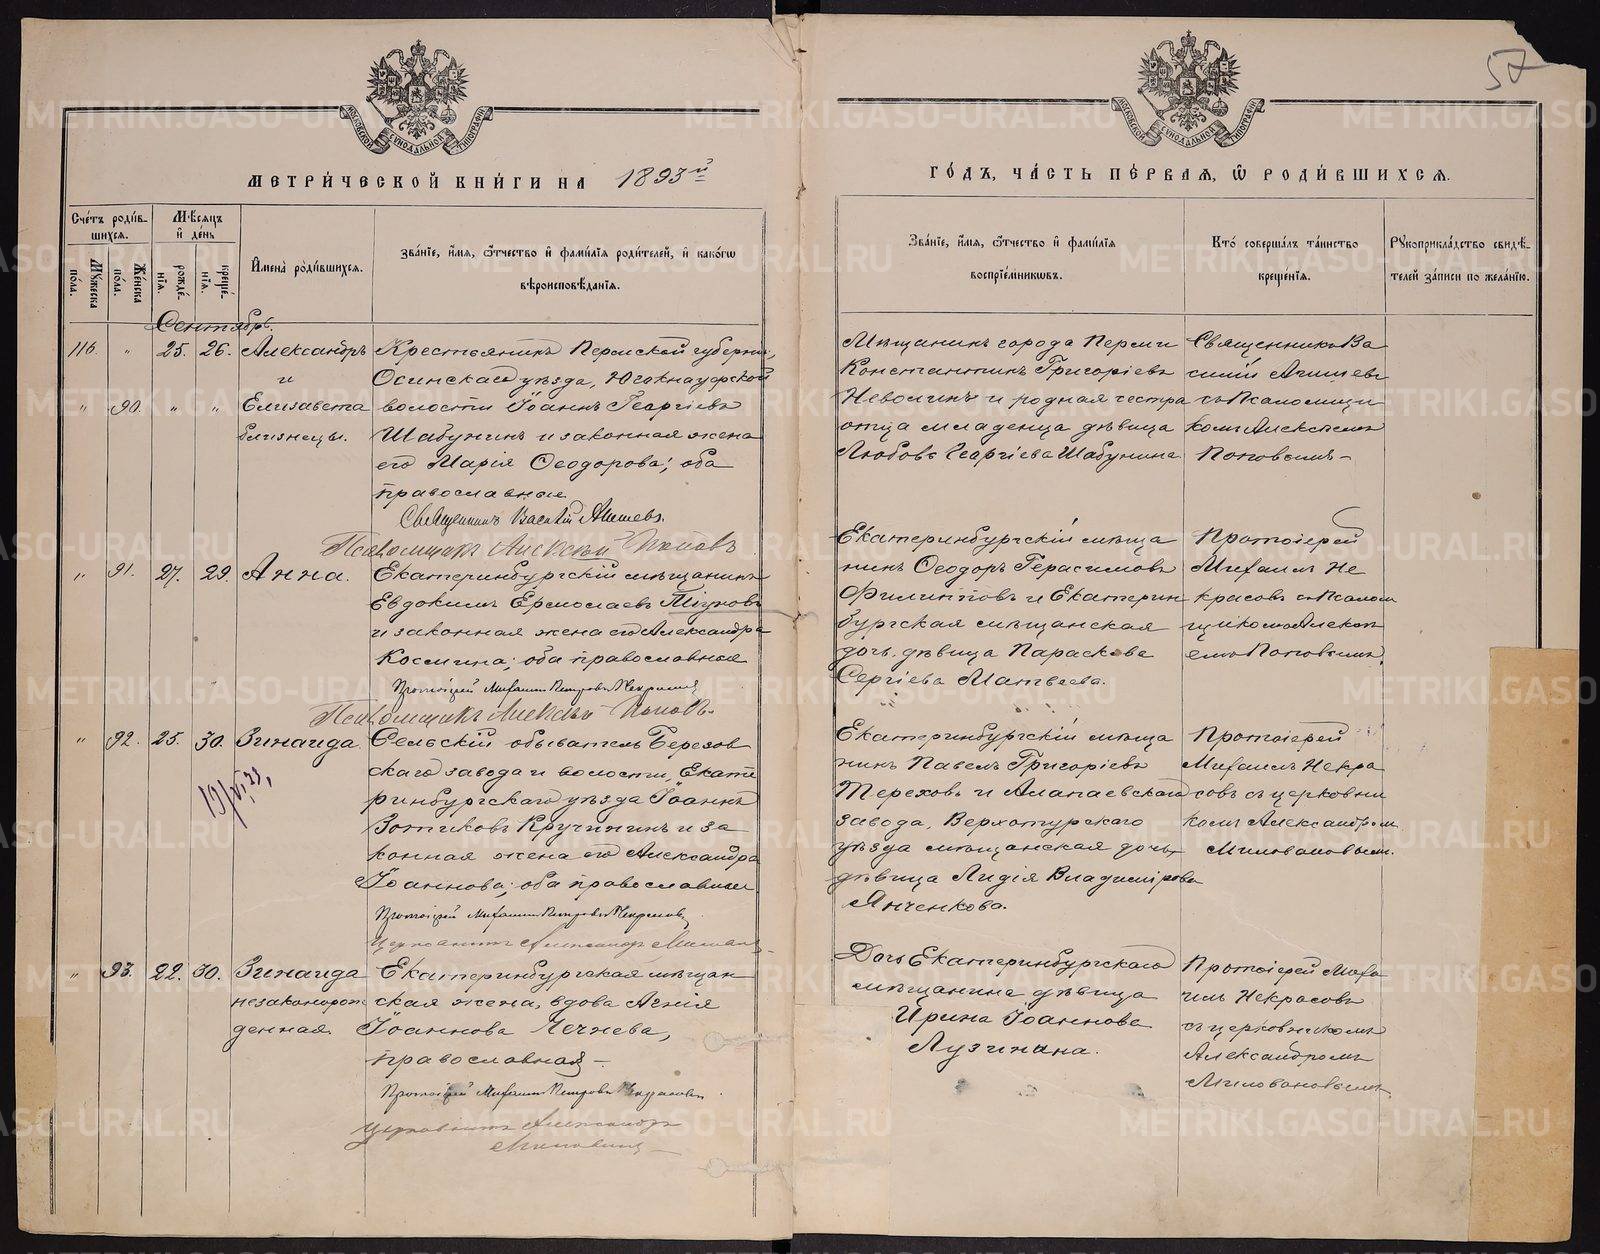 57
МОСКОВСКОЙ СѴНОДАЛЬНОЙ ТИПОГРАФІИ
МОСКОВСКОЙ СѴНОДАЛЬНОЙ ТИПОГРАФІИ
МЕТРИ́ЧЕСКОЙ КНИ́ГИ НА 1893й
ГО́ДЪ, ЧА́СТЬ ПЕ́РВАЯ, Ѡ РОДИ́ВШИХСЯ.
Сче́тъ роди́в-
шихся.
Му́жеска по́ла.
Же́нска по́ла.
Мѣ́сяцъ
и́ де́нь
рожде́-
нїя.
креще́-
нїя.
И҆мена̀ роди́вшихся.
Зва́нїе, и҆́мя, ѻ҆́тчество и҆ фами́лїя роди́телей, и҆ како́гѡ
вѣроисповѣ́данїя.
Зва́нїе, и҆́мя, ѻ҆́тчество и҆ фами́лїя
воспрїе́мникѡвъ.
Кто̀ соверша́лъ та́инство
креще́нїя.
Рꙋкоприкла́дство свидѣ́-
телей за́писи по жела́нїю.
Сентябрь.
116. " 25. 26. Александръ
и
" 90. " " Елизавета
близнецы.
Крестьянинъ Пермской губерніи,
Осинскаго уѣзда, Югокнауфской
волости Іоаннъ Георгіевъ
Шабунинъ и законная жена
его Марія Ѳеодорова; оба
православные
Священникъ Василій Агишевъ.
Псаломщикъ Алексѣй Поповъ
Мѣщанинъ города Перми
Константинъ Григоріевъ
Неволинъ и родная сестра
отца младенца дѣвица
Любовь Георгіева Шабунина
Священникъ Ва
силій Агишевъ
съ Псаломщи
комъ Алексѣемъ
Поповымъ –
" 91. 27. 29. Анна.
Екатеринбургскій мѣщанинъ
Евдокимъ Ермолаевъ
и законная жена его Александра
Космина; оба православные
Протоіерей Михаилъ Петровъ Некрасовъ
Псаломщикъ Алексѣй Поповъ.
Екатеринбургскій мѣща
нинъ Ѳеодоръ Герасимовъ
Филипповъ и Екатерин
бургская мѣщанская
дочь, дѣвица Параскева
Сергіева Матвеева.
Протоіерей
Михаилъ Не
красовъ съ Псалом
щикомъ Алексѣ
емъ Поповымъ.
" 92. 25. 30. Зинаида
Сельскій обыватель Березов
скаго завода и волости, Екате
ринбургскаго уѣзда Іоаннъ
Зотиковъ Кручининъ и за
конная жена его Александра
Іоаннова; оба православные
Протоіерей Михаилъ Петровъ Некрасовъ
Церковникъ Александръ Милован
Екатеринбургскій мѣща
нинъ Павелъ Григоріевъ
Тереховъ и Алапаевскаго
завода, Верхотурскаго
уѣзда мѣщанская дочь,
дѣвица Лидія Владимірова
Янченкова.
Протоіерей
Михаилъ Некра
совъ съ церковни
комъ Александромъ
Миловановымъ.
" 93. 22. 30. Зинаида
незаконорож
денная.
Екатеринбургская мѣщан
ская жена, вдова Агнія
Іоаннова Лечнева,
православная –
Протоіерей Михаилъ Петровъ Некрасовъ
Церковникъ Александръ
Милованъ
Дочь Екатеринбургскаго
мѣщанина дѣвица
Ирина Іоаннова
Лузинина.
Протоіерей Миха
илъ Некрасовъ
съ церковникомъ
Александромъ
Миловановымъ
METRIKI.GASO-URAL.RU